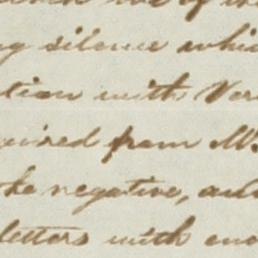 of the
g silence whi
tion with Ver
quired from M
the negative, and
letters with enc